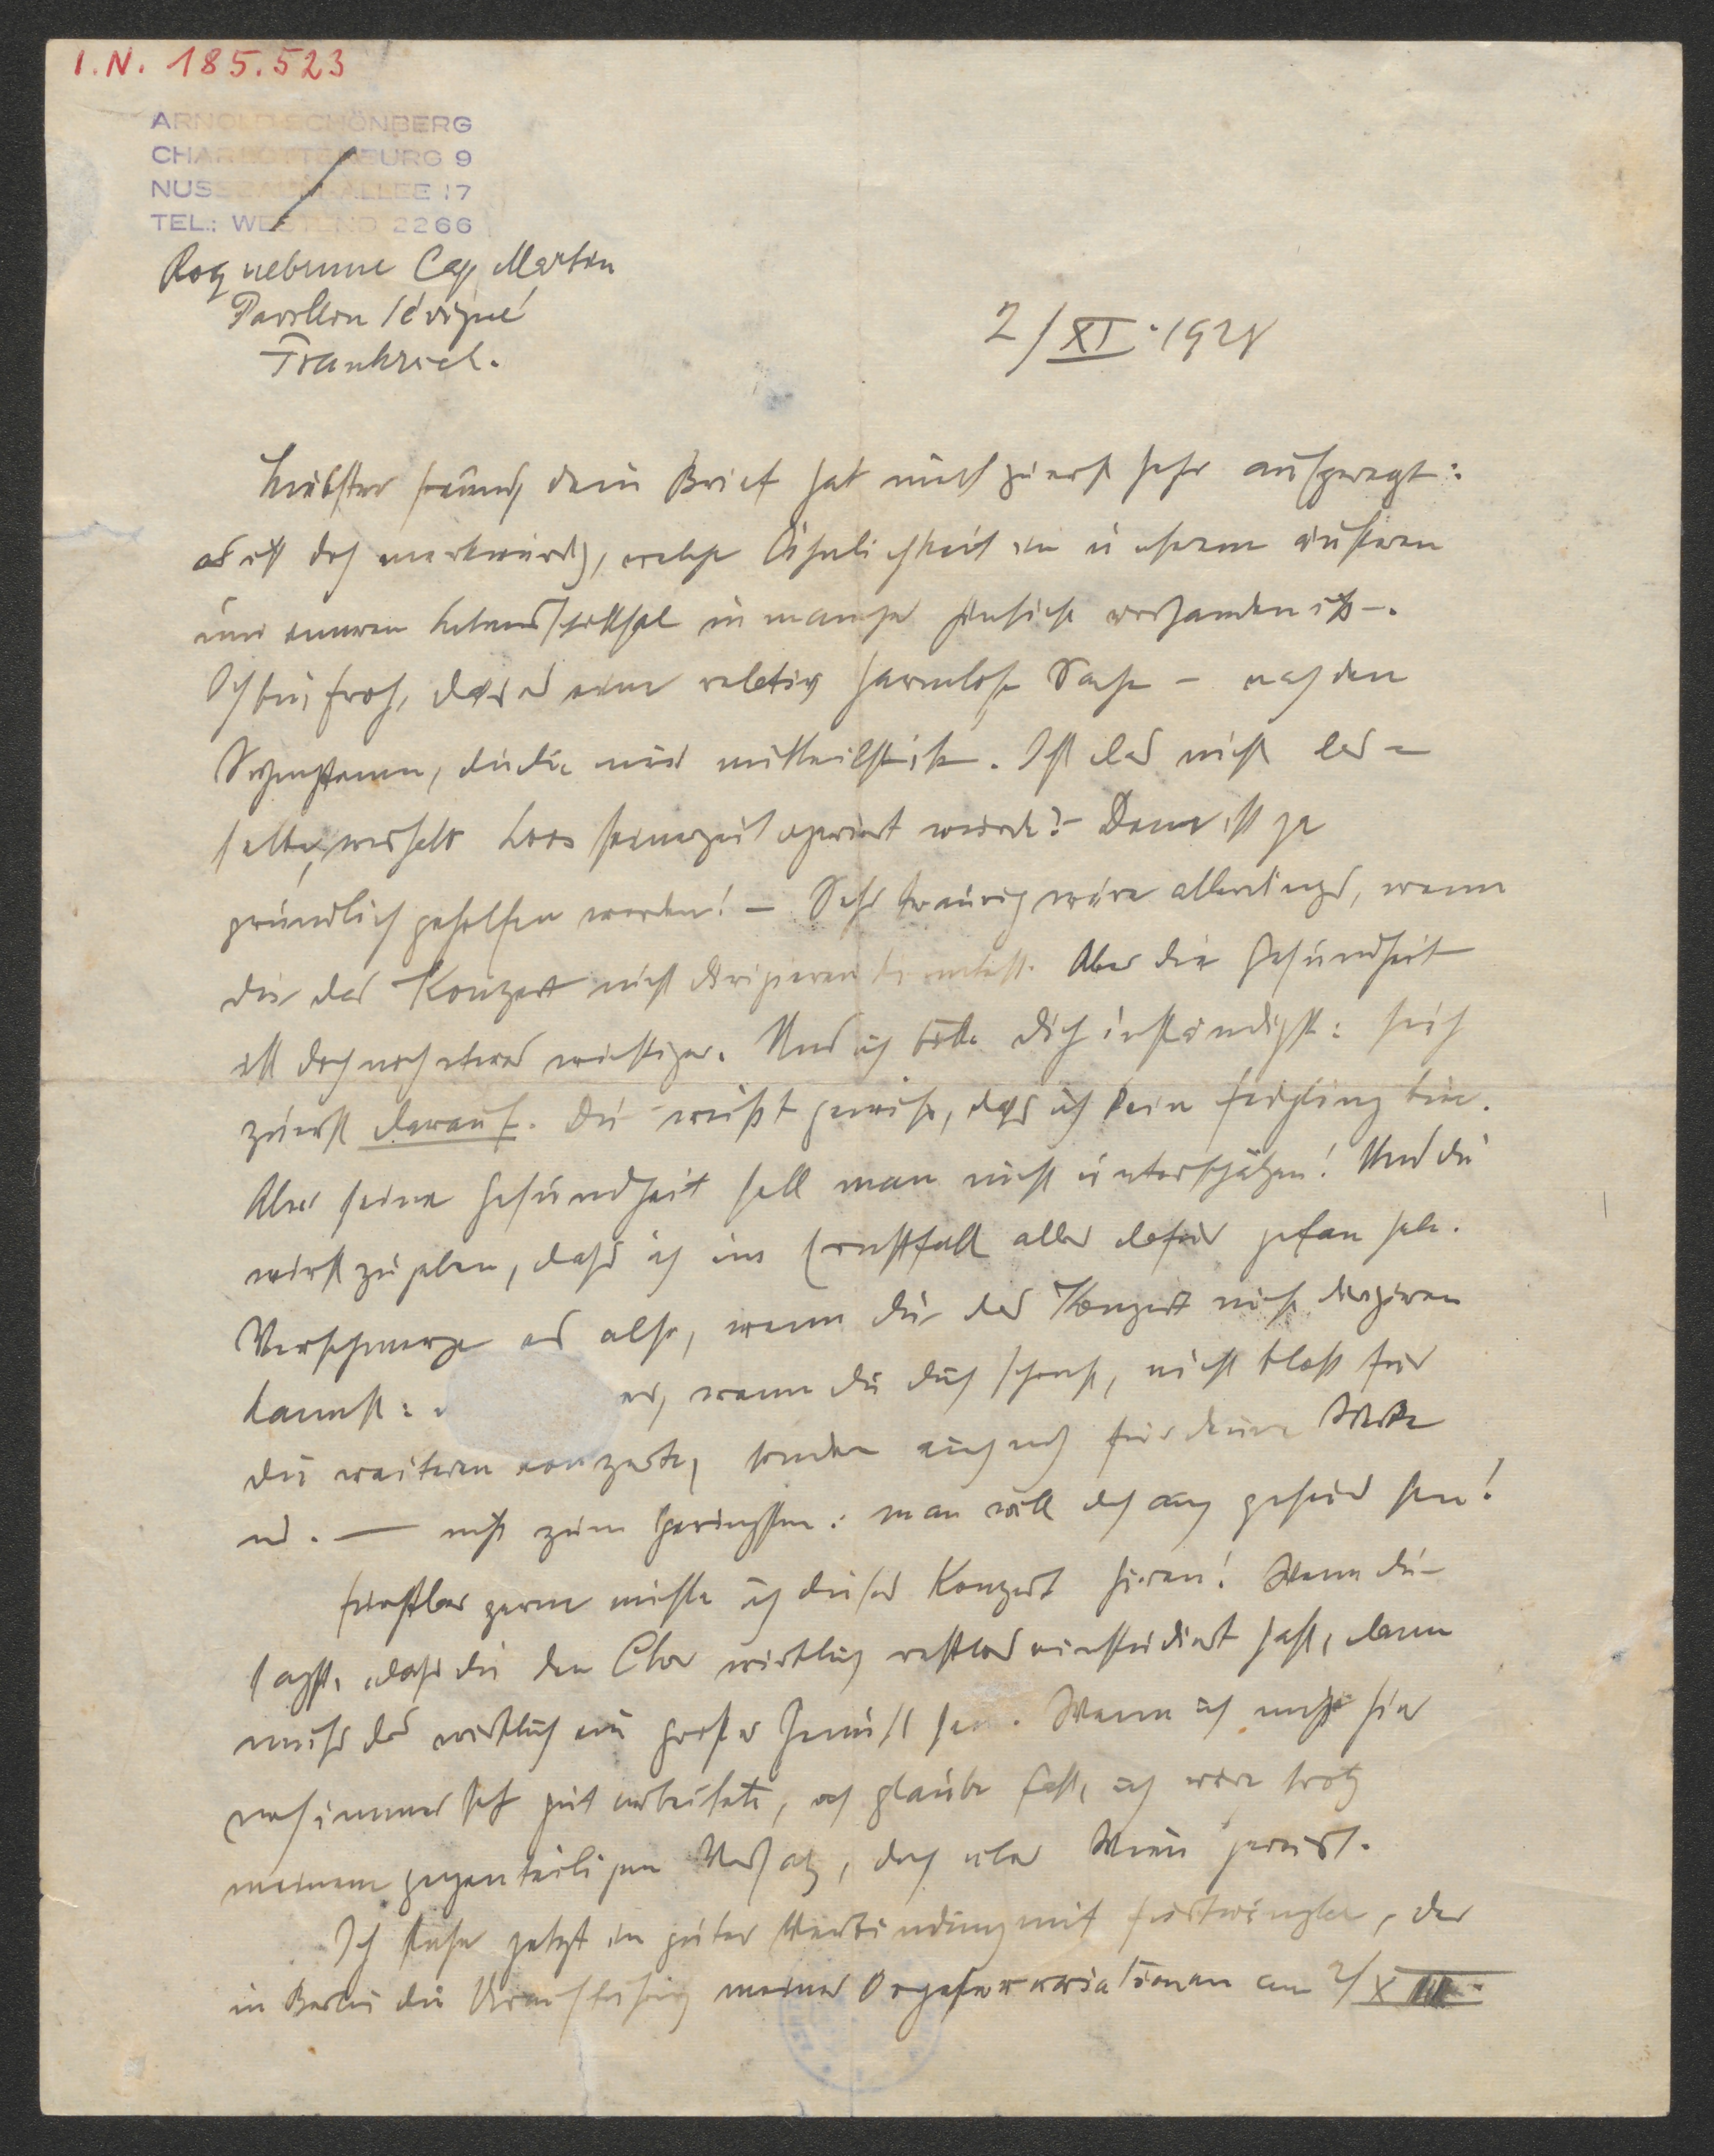 I.N. 185.523
ARNOLD SCHÖNBERG
CHARLOTTENBURG 9
NUSSBAUM-ALLEE 17
TEL.: WESTEND 2266
Roquebrune Cap Martin
Pavillon Sévigné
Frankreich.
2/XI. 1928
Liebster Freund, dein Brief hat mich zuerst sehr aufgeregt:
es ist doch merkwürdig, welche Ähnlichkeit in unserem äußeren
und inneren Lebensschicksal in mancher Hinsicht vorhanden ist –.
Ich bin froh, dass es eine relativ harmlose Sache – nach den
Symptomen, die du mir mitteilst ist. Ist das nicht das-
selbe, weshalb Loos seinerzeit operiert wurde? – Dem ist ja
gründlich geholfen worden! – Sehr traurig wäre allerdings, wenn
du das Konzert nicht dirigieren könntest. Aber die Gesundheit
ist doch noch etwas wichtiger. Und ich bitte dich inständigst: sieh
zuerst darauf. Du weißt gewiss, dass ich kein Feigling bin.
Aber seine Gesundheit soll man nicht unterschätzen! Und du
wirst zugeben, dass ich im Ernstfall alles dafür getan habe.
Verschmerze es also, wenn du das Konzert nicht dirigieren
kannst: es, wenn du dich schonst, nicht bloss für
die weiteren Konzerte, sondern auch noch für deine Werke
und. — nicht zum Geringsten: man will doch auch gesund sein!
Furchtbar gerne möchte ich dieses Konzert hören! Wenn du
sagst, dass du den Chor wirklich restlos einstudiert hast, dann
muss das wirklich ein großer Genuss sein. Wenn ich nicht hier
noch immer sehr gut arbeitete, ich glaube fast, ich wäre trotz
meinem gegenteiligen Vorsatz, doch über Wien gereist.
Ich stehe jetzt in guter Verbindung mit Furtwängler, der
in Berlin die Uraufführung meiner Orchestervariationen am 2/X